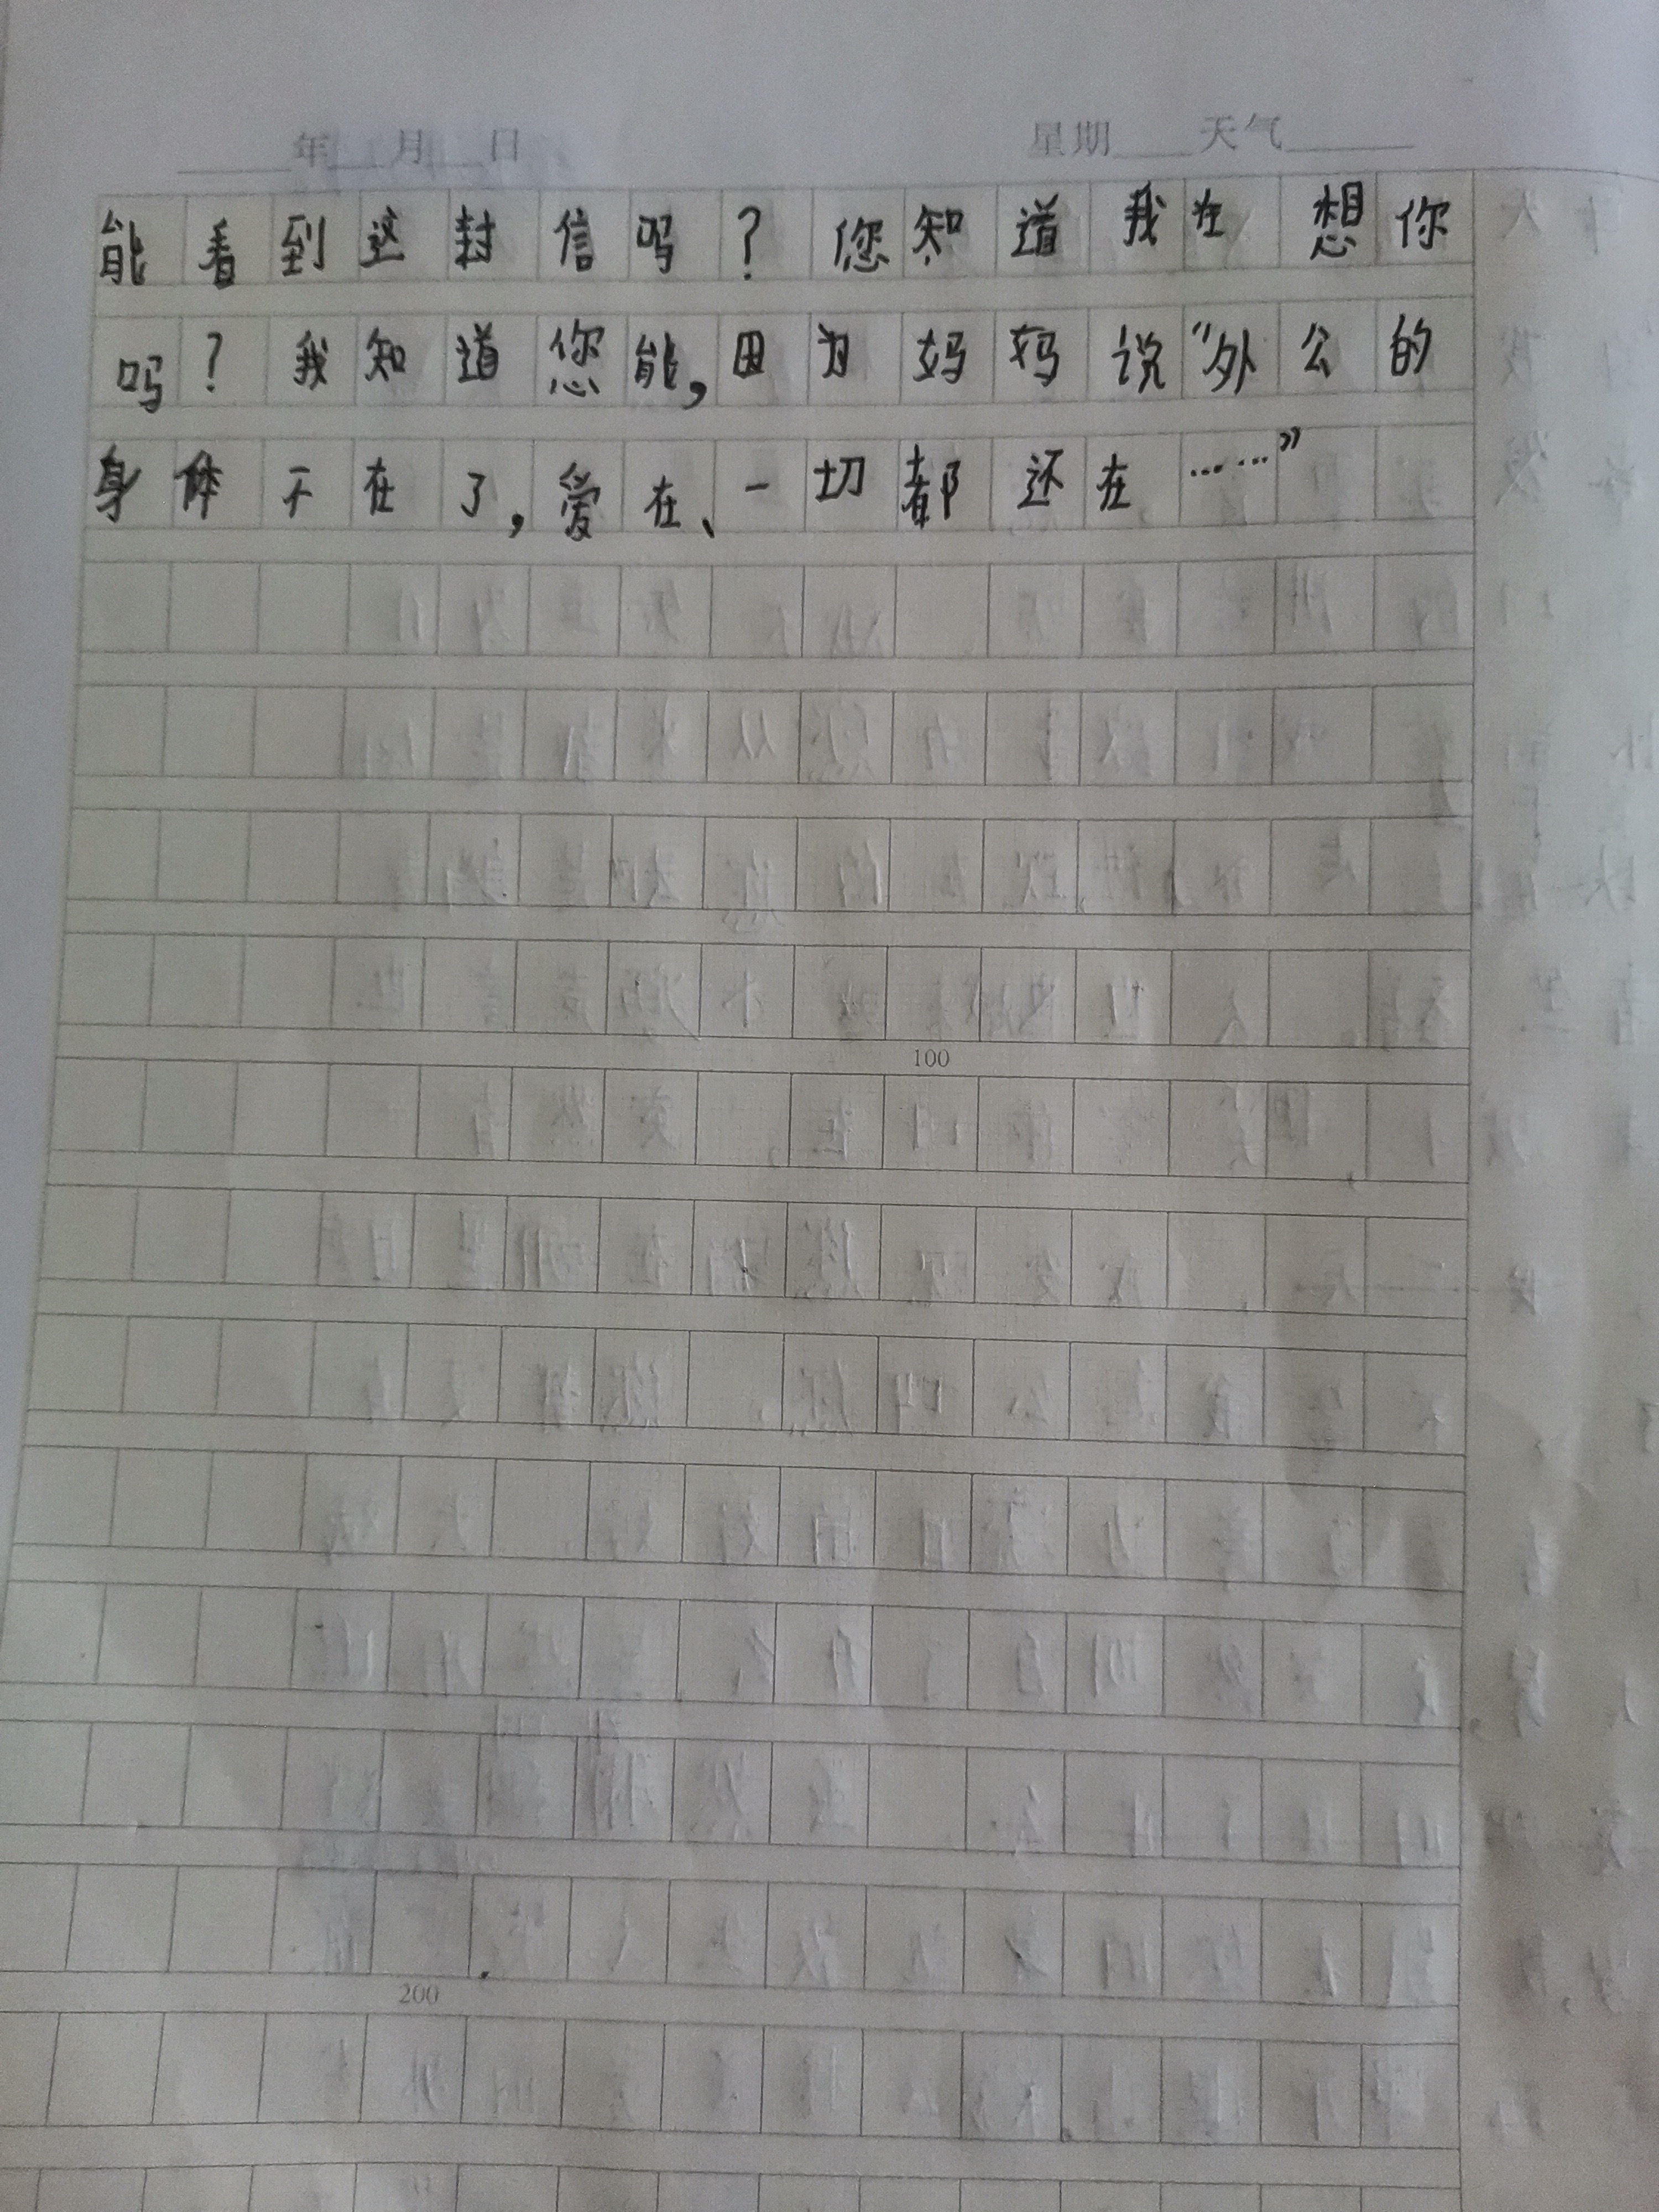 ____年____月____日 星期____天气______
能看到这封信吗？您知道我在想你
吗？我知道您能，因为妈妈说“外公的
身体不在了，爱在、一切都还在……”
100
200